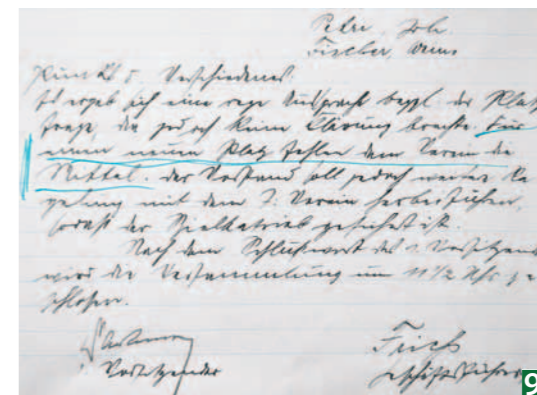 Petri, Joh.
Fischer, Heinr.
Punkt 5. Verschiedenes.
Es ergab sich eine rege Aussprache bezgl. der Platz
frage, die jedoch keine Klärung brachte. Für
einen neuen Platz fehlen dem Verein die
Mittel. der Vorstand soll jedoch weiter Re
gelung mit dem T. Verein herbeiführen,
sodaß der Spielbetrieb gesichert ist.
Nach dem Schlußwort des 1. Vorsitzend
wird die Versammlung um 11 1/2 Uhr ge
schlossen.
Vorsitzender
Frich
Geschäftsführer
9